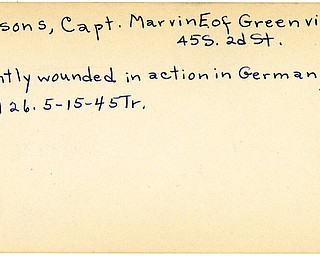 sons, Capt. Marvin E of Greenvi
45 S. 2d St.
ntly wounded in action in German
26. 5-15-45 Tr.